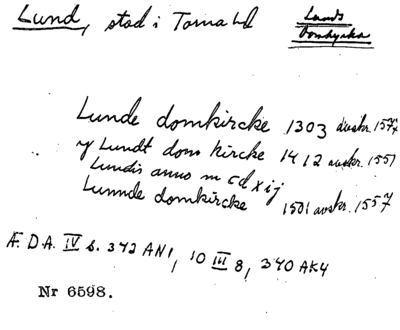 Lund, stad i Torna hd
Lunds
Domkyrka
Lunde domkircke 1303 avskr. 1577
y Lundt dom kircke 1412 avskr. 1557
Lundis anno m cd x ij
Lunnde domkircke 1501 avskr. 1557
Æ. D A. IV s. 342 AN1, 10 III 8, 340 AK4
Nr 6598.